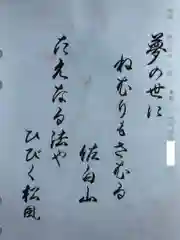 夢の世に
ねむりもさむる
佐白山
たえなる法や
ひびく松風